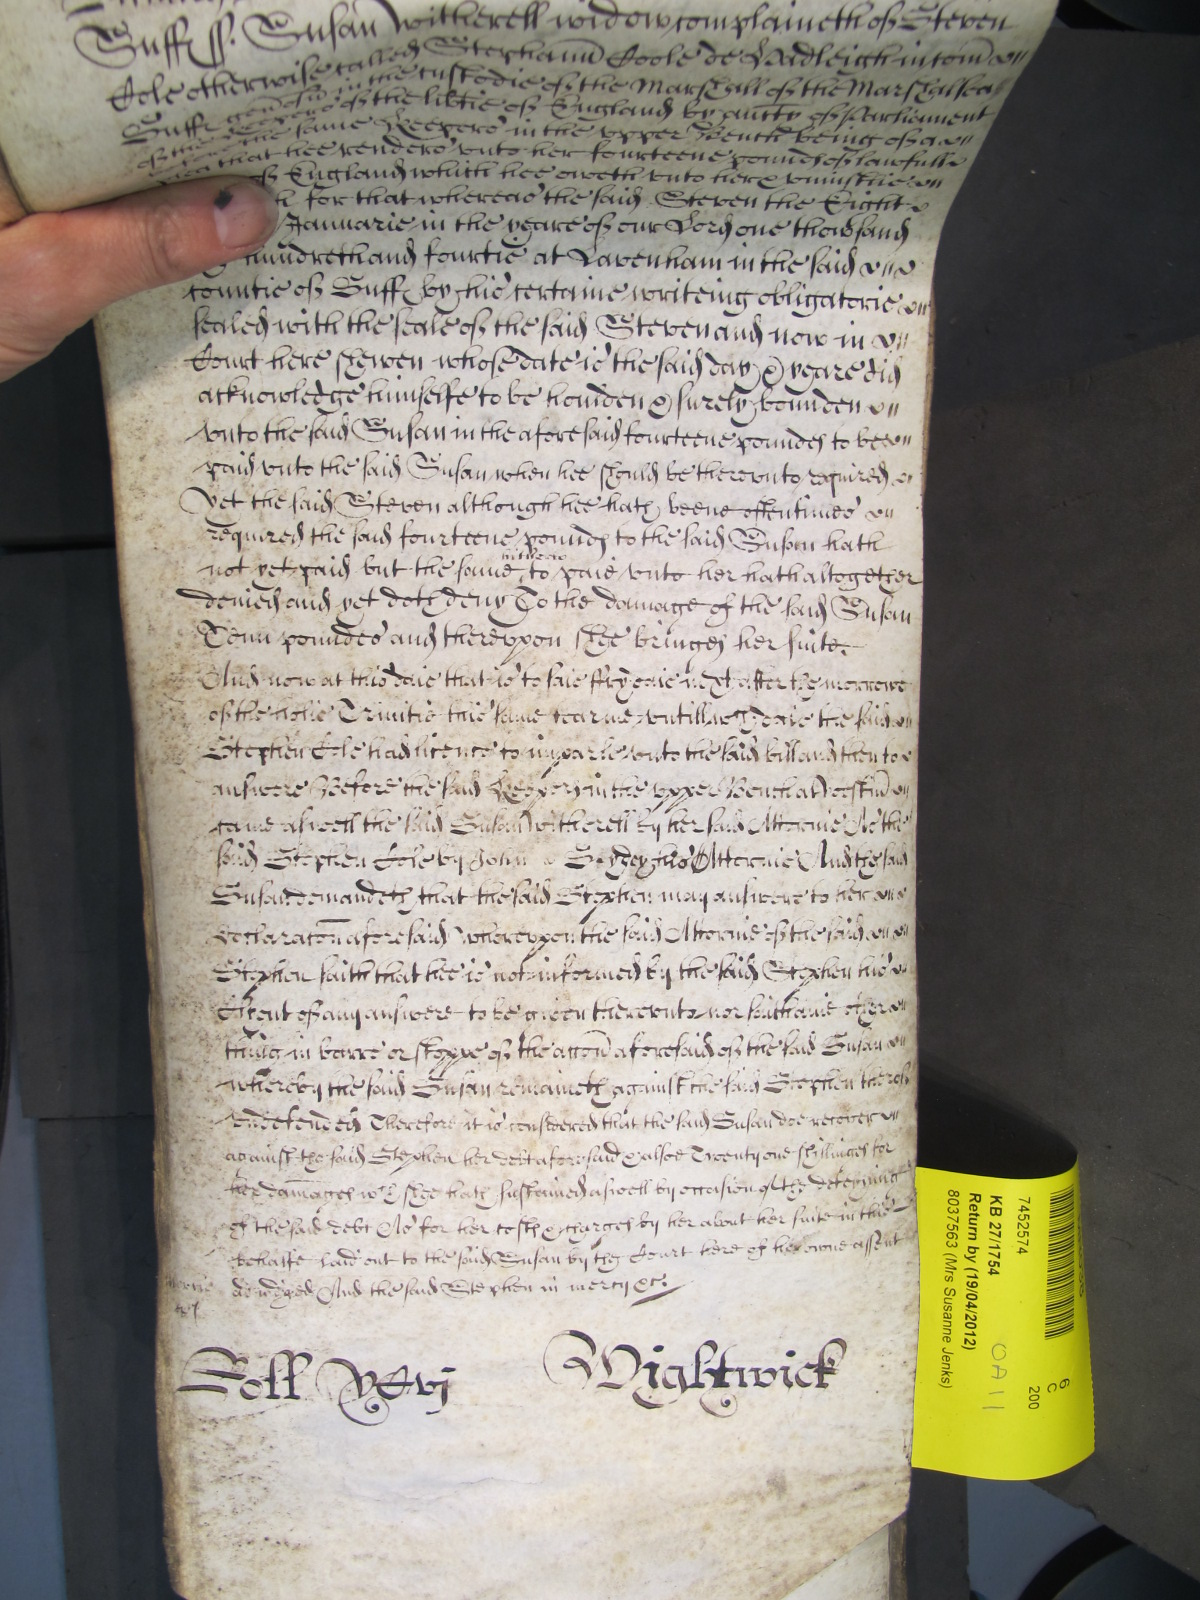 Suff ss. Susan Witherell widow complaineth of Steven
Cole otherwise called Stephanu Coole de Hadleigh in com
Suff in the custodie of the Marshall of the Marshalsea
of the libtie of England by autty of Parliament
before the same Keepers in the upper Bench being of a
plea that hee render unto her fourteene poundes of lawfull
of England which hee oweth unto her & uniustlie
for that whereas the said Steven the Eight
Januarie in the yeare of our Lord one thowsand
hundreth and fourtie at Lavenham in the said
countie of Suff by his certaine writeing obligatorie
sealed with the seale of the said Steven and now in
Court here shewen whose date is the said day & yeare did
acknowledge himselfe to be houlden & surely bounden
unto the said Susan in the aforesaid fourteene poundes to bee
paid unto the said Susan when hee should be thereunto required
Yet the said Steven although hee hath beene oftentimes
required the said fourteene pounds to the said Susan hath
not yet paid but the same hitherto to paie unto her hath altogether
denied and yet doth deny To the damage of the said Susan
Tenn poundes and thereupon shee bringes her suite.
And now at this daie that is to saie ffrydaie next after the morrowe
of the holie Trinitie this same tearme untill wch daie the said
Stephen Cole had licence to imparle unto the said bill and then to
answere Before the said Keepers in the upper Bench at Westm
came aswell the said Susan Witherell by her said Attornie As the
said Stephen Cole by John his Attornie And the said
Susan demandeth that the said Stephen may answere to her
declaracon aforesaid whereupon the said Attornie of the said
Stephen saith that hee is not informed by the said Stephen his
Clyent of any answere to be given thereunto nor saith anie other
thing in barre or stoppe of the accon aforesaid of the said Susan
whereby the said Susan remaineth against the said Stephen therof
undefended Therefore it is considered that the said Susan doe recover
against the said Stephen her debt aforesaid & alsoe Twenty one shillinges for
her damages wch shee hath susteined aswell by occasion of the deteyning
of the said debt As for her costs & charges by her about her suite in this
behalfe laid out to the said Susan by the Court here of her owne assent
adiudged And the said Stephen in mercy &c.
Roll
Wightwick
7452574
KB 27/1754
Return by (19/04/2012)
8037563 (Mrs Susanne Jenks)
6
C
200